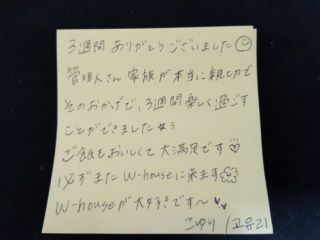 3週間 ありがとうございました☺
管理人さん 家族が本当に親切で
そのおかげで、3週間楽しく過ごす
ことができました☆ミ
ご飯もおいしくて 大満足です♡
必ずまた W-houseに来ます
W-houseが大好きです〜♥♥
こゆり / 고유리